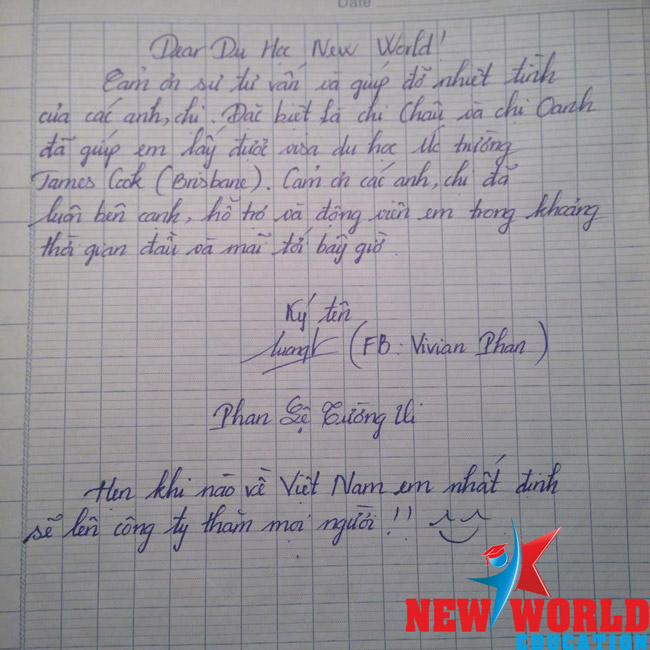 Date
Dear Du Học New World!
Cảm ơn sự tư vấn và giúp đỡ nhiệt tình
của các anh, chị. Đặc biệt là chị Châu và chị Oanh
đã giúp em lấy được visa du học Úc trường
James Cook (Brisbane). Cảm ơn các anh, chị đã
luôn bên cạnh, hỗ trợ và động viên em trong khoảng
thời gian đầu và mãi tới bây giờ
Ký tên
(FB: Vivian Phan)
Phan Lệ Tường Vi
Hẹn khi nào về Việt Nam em nhất định
sẽ lên công ty thăm mọi người!!
NEW WORLD
EDUCATION